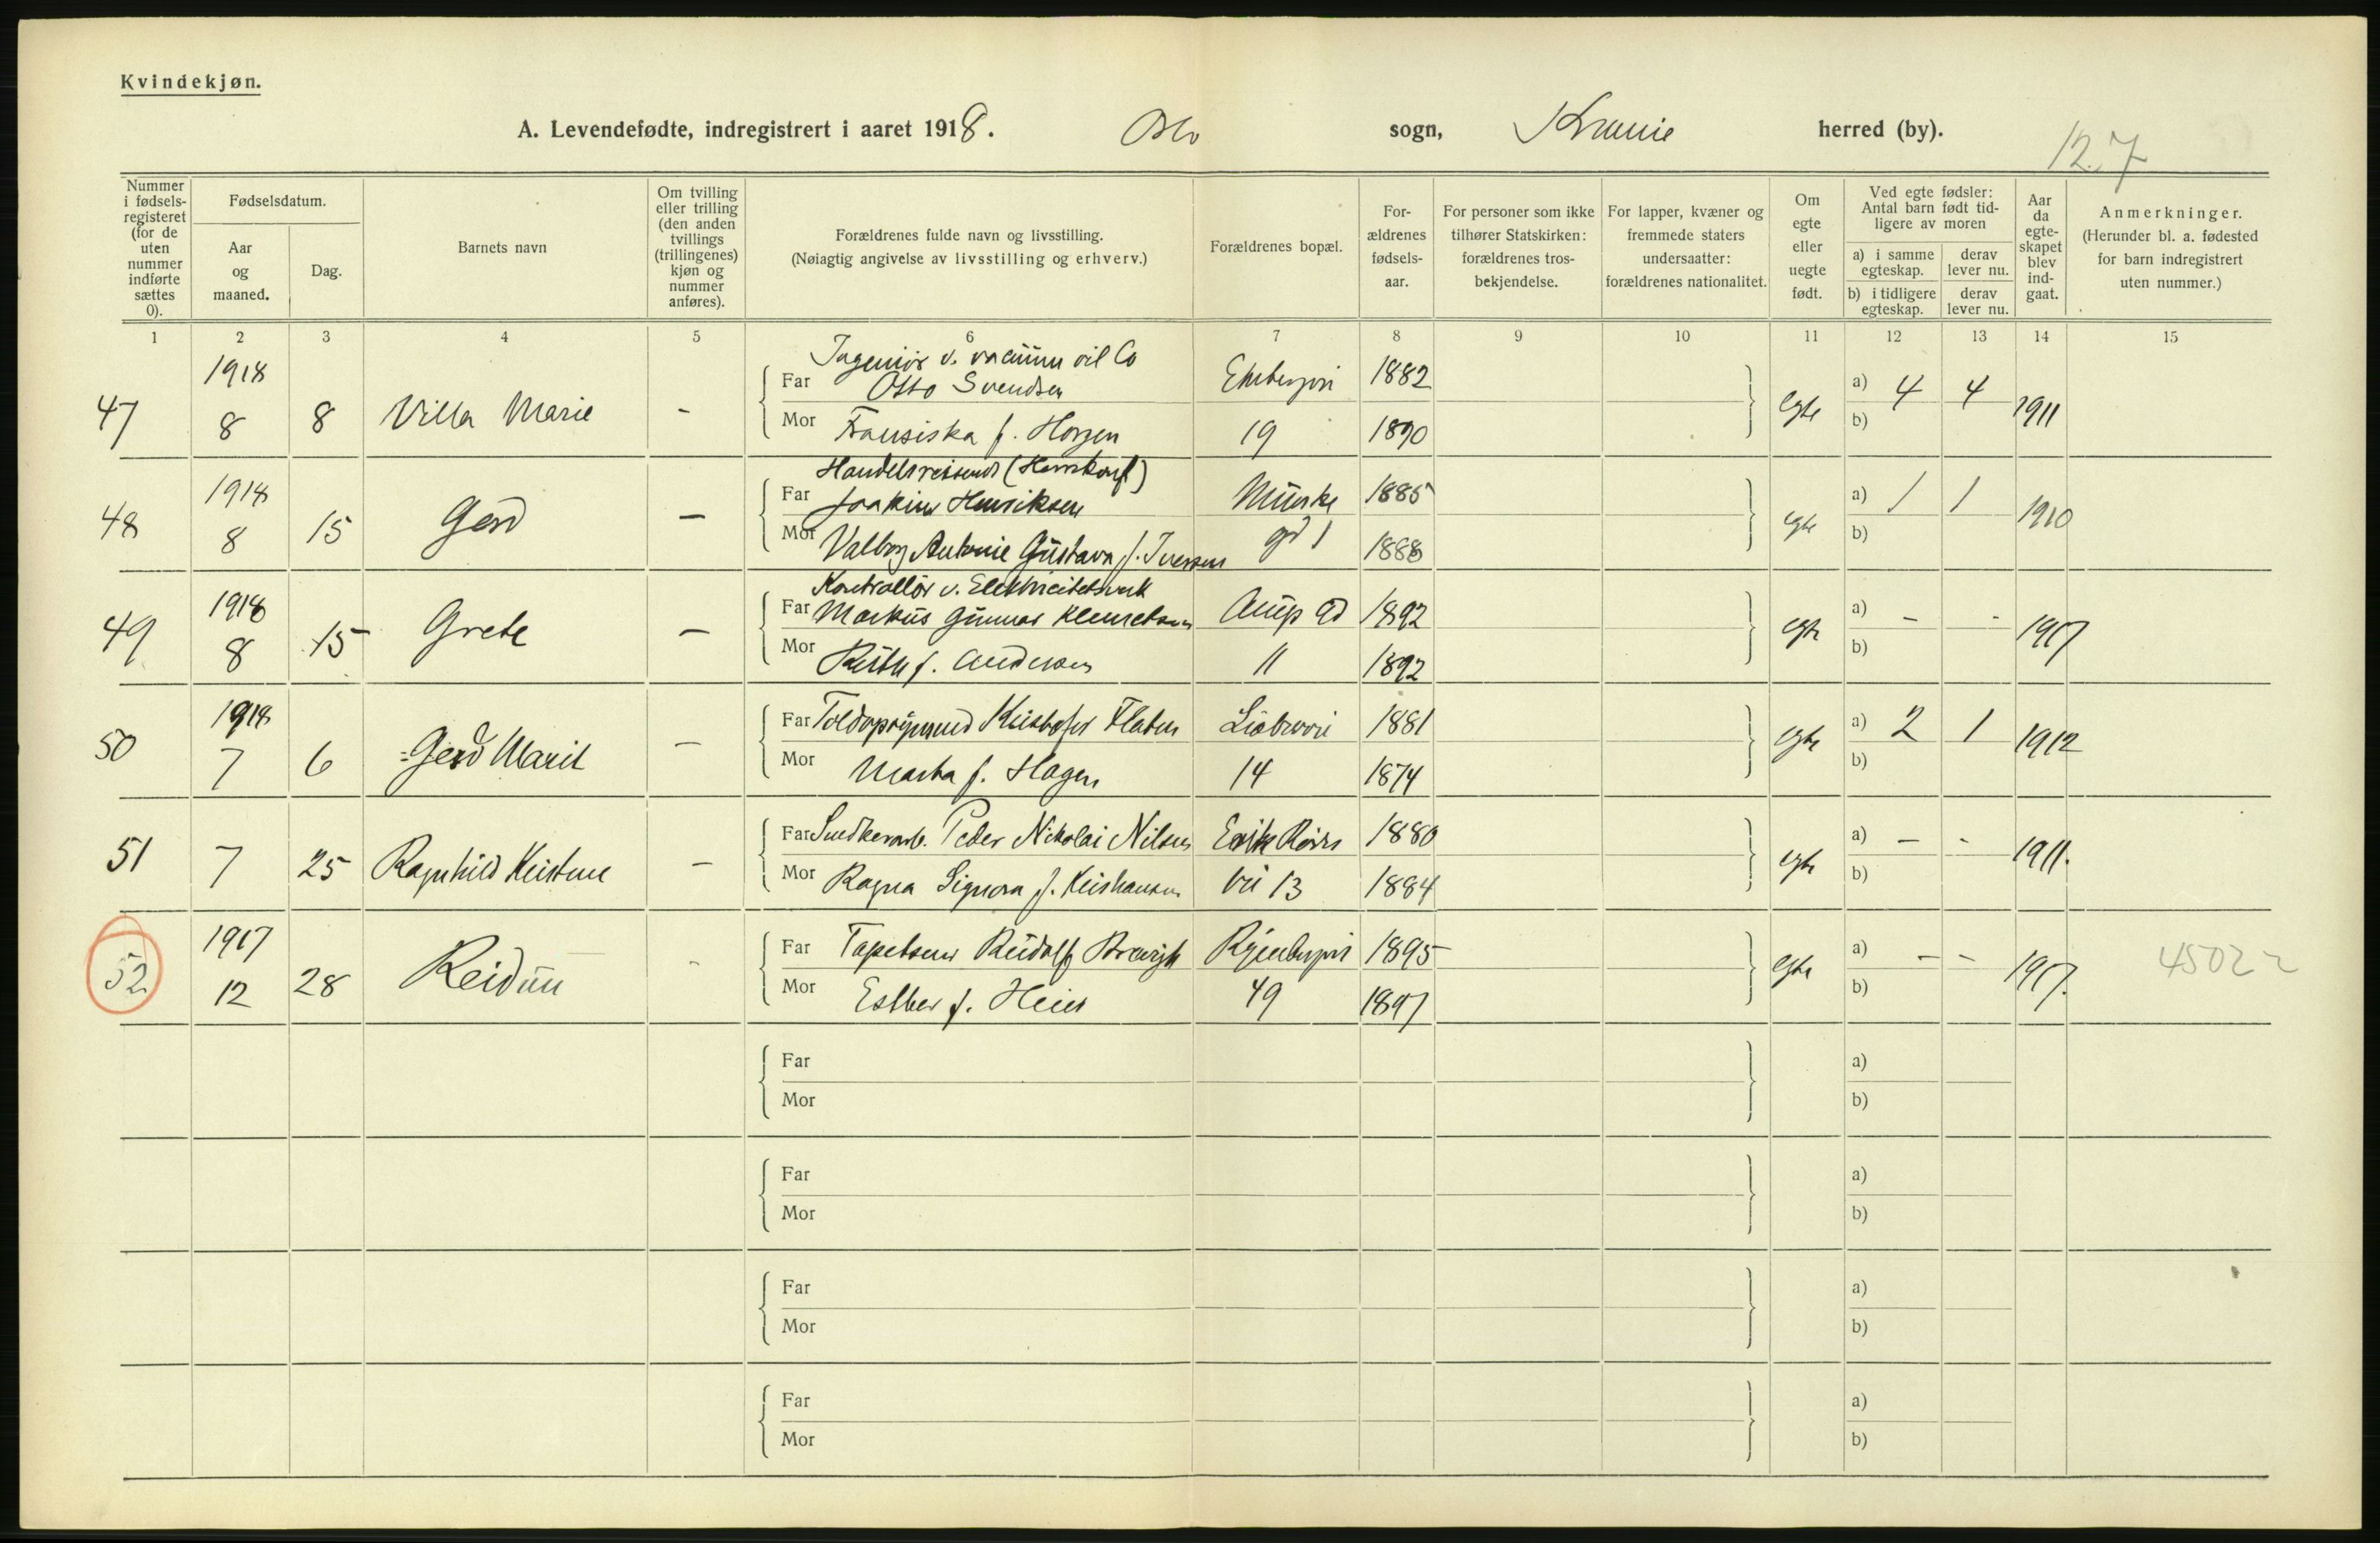 Kvindekjøn.
A. Levendefødte, indregistrert i aaret 1918. Oslo sogn, Krania herred (by).
127
Nummer i fødselsregisteret (for de uten nummer indførte sættes 0).
Fødselsdatum.
Aar og maaned.
Dag.
Barnets navn
Om tvilling eller trilling (den anden tvillings (trillingenes) kjøn og nummer anføres).
Forældrenes fulde navn og livsstilling.
(Nøiagtig angivelse av livsstilling og erhverv.)
Forældrenes bopæl.
Forældrenes fødselsaar.
For personer som ikke tilhører Statskirken: forældrenes trosbekjendelse.
For lapper, kvæner og fremmede staters undersaatter: forældrenes nationalitet.
Om egte eller uegte født.
Ved egte fødsler: Antal barn født tidligere av moren
a) i samme egteskap. derav lever nu.
b) i tidligere egteskap. derav lever nu.
Aar da egteskapet blev indgaat.
Anmerkninger.
(Herunder bl. a. fødested for barn indregistrert uten nummer.)
1 2 3 4 5 6 7 8 9 10 11 12 13 14 15
Ingeniør v. vacuum oil Co
47 1918 8 8 Villa Marie - Far Otto Svendsen 1882 egte a) 4 4 1911
Mor Fransiska f. Horgen 19 1890 b)
Handelsreisende
48 1918 8 15 Gerd - Far Joakim Henriksen Munke 1885 egte a) 1 1 1910
Mor Valborg Antonie Gustava f. Iversen gd 1 1888 b)
Kontrollør v. Elektricitetsverk
49 1918 8 15 Grete - Far Markus Gunnar Klemetsen 1892 egte a) - - 1917
Mor Ruth f. Andersen 11 1892 b)
50 1918 7 6 Gerd Marit - Far Toldopsynsmd Kristofer Flaten 1881 egte a) 2 1 1912
Mor Marta f. Hagen 14 1874 b)
51 7 25 Ragnhild Kristine - Far Snedkerarb. Peder Nikolai Nilsen 1880 egte a) - - 1911.
Mor Ragna Signora f. Kristiansen vei 13 1884 b)
52 1917 12 28 Reidun - Far Tapetserer Rudolf 1895 egte a) - - 1917. 45022
Mor Esther f. Heier 49 1897 b)
Far a)
Mor b)
Far a)
Mor b)
Far a)
Mor b)
Far a)
Mor b)